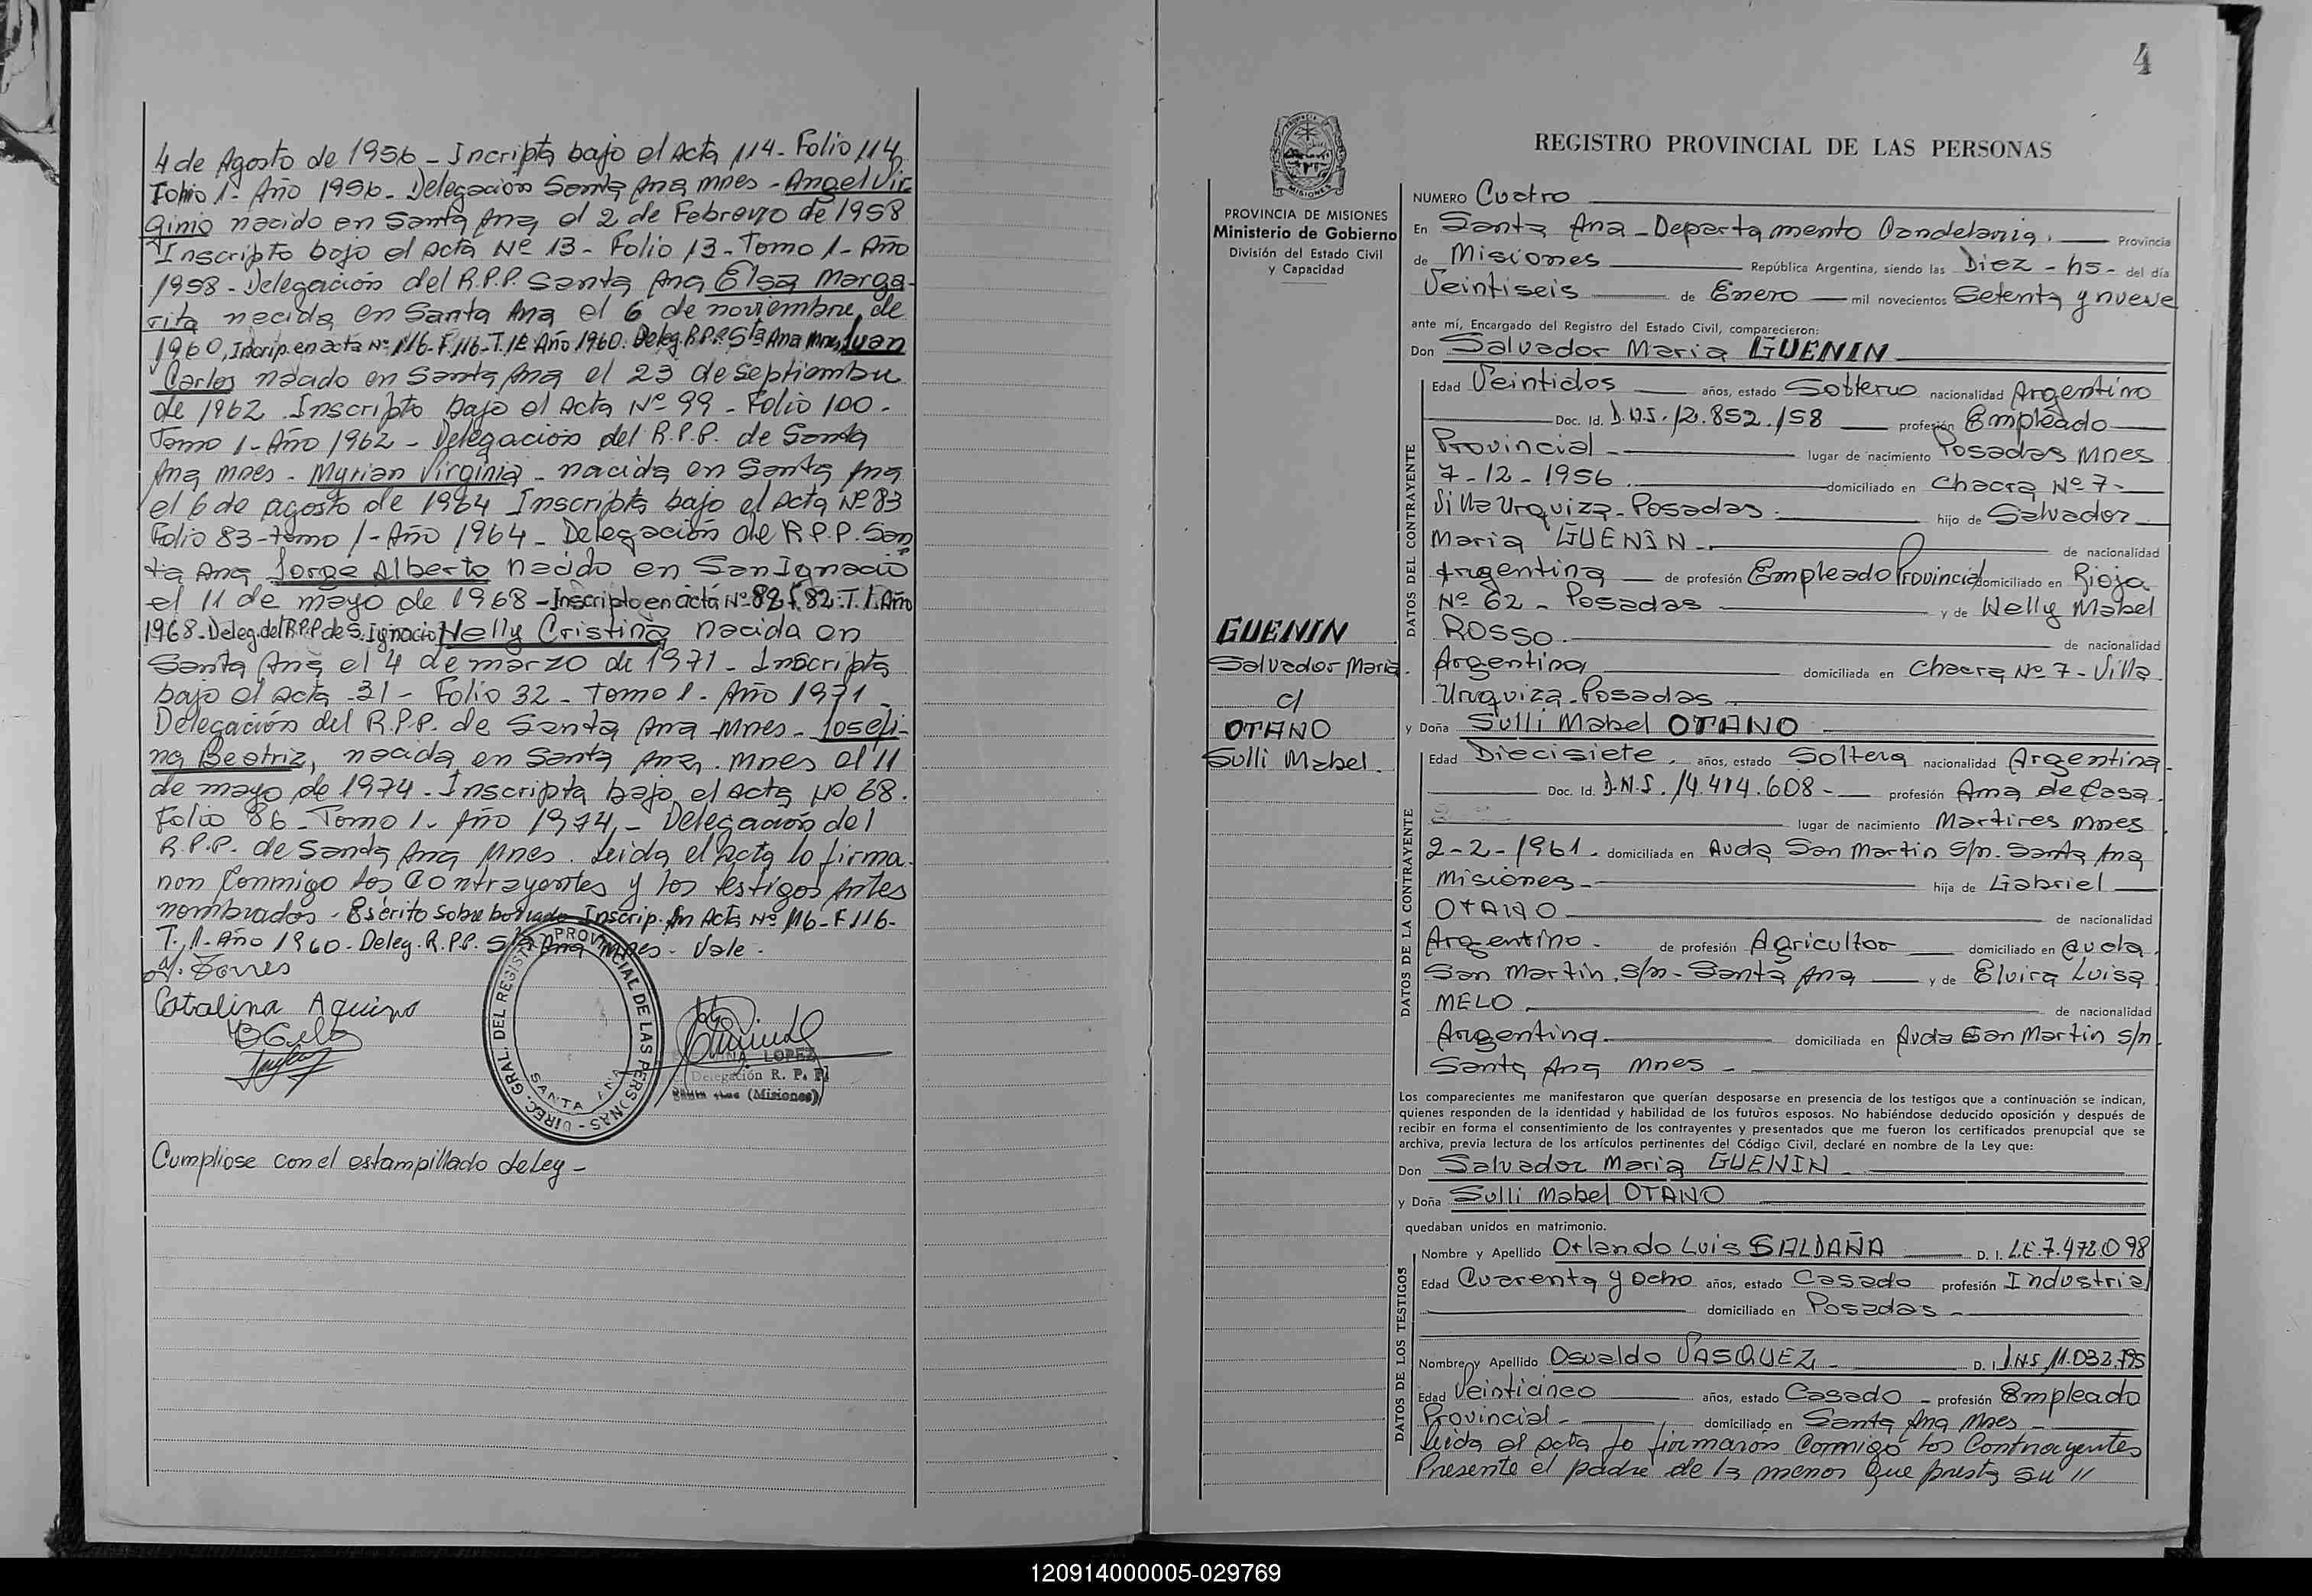 4 de Agosto de 1956 - Incripta bajo el Acta 114 - Folio 114
Tomo 1 - Año 1956 - Delegación Santa Ana Mnes - Angel Vir
ginio nacido en Santa Ana el 2 de Febrero de 1958
Inscripto bajo el acta Nº 13 - Folio 13 - Tomo 1 - Año
1958 - Delegación del R.P.P. Santa Ana Elsa Marga-
rita necida en Santa Ana el 6 de noviembre de
1960, Inscrip. en acta Nº 116 - F. 116 - T. 1º Año 1960. Deleg. R.P.P. Sta Ana Mnes, Juan
Carlos nacido en Santa Ana el 23 de septiembre
de 1962. Inscripto bajo el Acta Nº 99 - Folio 100 -
Tomo 1 - Año 1962 - Delegación del R.P.P. de Santa
Ana Mnes - Myrian Virginia - nacida en Santa Ana
el 6 de agosto de 1964 Inscripta bajo el Acta Nº 83
Folio 83 - tomo 1 - Año 1964 - Delegación del R.P.P. San
ta Ana Jorge Alberto nacido en San Ignacio
el 11 de mayo de 1968 - Inscripto en acta Nº 82 F. 82 - T. 1. Año
1968 - Deleg. del R.P.P. de S. Ignacio, Nelly Cristina nacida en
Santa Ana el 4 de marzo de 1971 - Inscripta
bajo el acta 31 - Folio 32 - tomo 1 - Año 1971 -
Delegación del R.P.P. de Santa Ana Mnes - Josefi-
na Beatriz, nacida en Santa Ana. Mnes el 11
de mayo de 1974 - Inscripta bajo el acta Nº 68.
Folio 86 - Tomo 1 - Año 1974, - Delegación del
R.P.P. de Santa Ana Mnes. Leida el Acta lo firma-
ron Conmigo los Contrayentes y los testigos Antes
nombrados - Escrito sobre borrado Inscrip. en Acta Nº 116 - F 116 -
T., 1 - Año 1960 - Deleg. R.P.P. Sta Ana Mnes - Vale -
Torres
Catalina Aquino
DIREC. GRAL. DEL REGISTRO PROVINCIAL DE LAS PERSONAS -
SANTA ANA
LOPEZ
Delegación R. P. P.
(Misiones)
Cumpliose con el estampillado de Ley -
4
REGISTRO PROVINCIAL DE LAS PERSONAS
MISIONES
PROVINCIA DE MISIONES
Ministerio de Gobierno
División del Estado Civil
y Capacidad
GUENIN
Salvador Maria.
c/
OTANO
Sulli Mabel.
NUMERO Cuatro
En Santa Ana - Departamento Candelaria. Provincia
de Misiones República Argentina, siendo las Diez - hs - del día
Veintiseis de Enero mil novecientos Setenta y nueve
ante mí, Encargado del Registro del Estado Civil, comparecieron:
Don Salvador Maria GUENIN
DATOS DEL CONTRAYENTE
Edad Veintidos años, estado Soltero nacionalidad Argentino
Doc. Id. D.N.I. 12.852.158 profesión Empleado
Provincial lugar de nacimiento Posadas Mnes
7-12-1956 domiciliado en Chacra Nº 7 -
Villa Urquiza - Posadas. hijo de Salvador
Maria GUENIN - de nacionalidad
Argentina de profesión Empleado Provincial domiciliado en Rioja
Nº 62 - Posadas y de Nelly Mabel
ROSSO. de nacionalidad
Argentina domiciliada en Chacra Nº 7 - Villa
Urquiza - Posadas
y Doña Sulli Mabel OTANO
DATOS DE LA CONTRAYENTE
Edad Diecisiete. años, estado Soltera nacionalidad Argentina -
Doc. Id. D.N.I. 14.414.608 - profesión Ama de Casa.
lugar de nacimiento Martires Mnes
2-2-1961. domiciliada en Avda San Martin S/n. Santa Ana
Misiones - hija de Gabriel
OTANO de nacionalidad
Argentino. de profesión Agricultor domiciliado en avda.
San Martin, S/n - Santa Ana y de Elvira Luisa
MELO de nacionalidad
Argentina. domiciliada en Avda San Martin S/n.
Santa Ana Mnes -
Los comparecientes me manifestaron que querían desposarse en presencia de los testigos que a continuación se indican,
quienes responden de la identidad y habilidad de los futuros esposos. No habiéndose deducido oposición y después de
recibir en forma el consentimiento de los contrayentes y presentados que me fueron los certificados prenupcial que se
archiva, previa lectura de los artículos pertinentes del Código Civil, declaré en nombre de la Ley que:
Don Salvador Maria GUENIN -
y Doña Sulli Mabel OTANO
quedaban unidos en matrimonio.
DATOS DE LOS TESTIGOS
Nombre y Apellido Orlando Luis SALDAÑA D. I. L.E. 7.472.098
Edad Cuarenta y ocho años, estado Casado profesión Industrial
domiciliado en Posadas -
Nombre y Apellido Osvaldo VASQUEZ - D. I. D.N.I. 11.032.795
Edad Veinticinco años, estado Casado - profesión Empleado
Provincial - domiciliado en Santa Ana Mnes -
Leida el acta lo firmaron Conmigo los Contrayentes
Presente el padre de la menor que presta su "
120914000005-029769